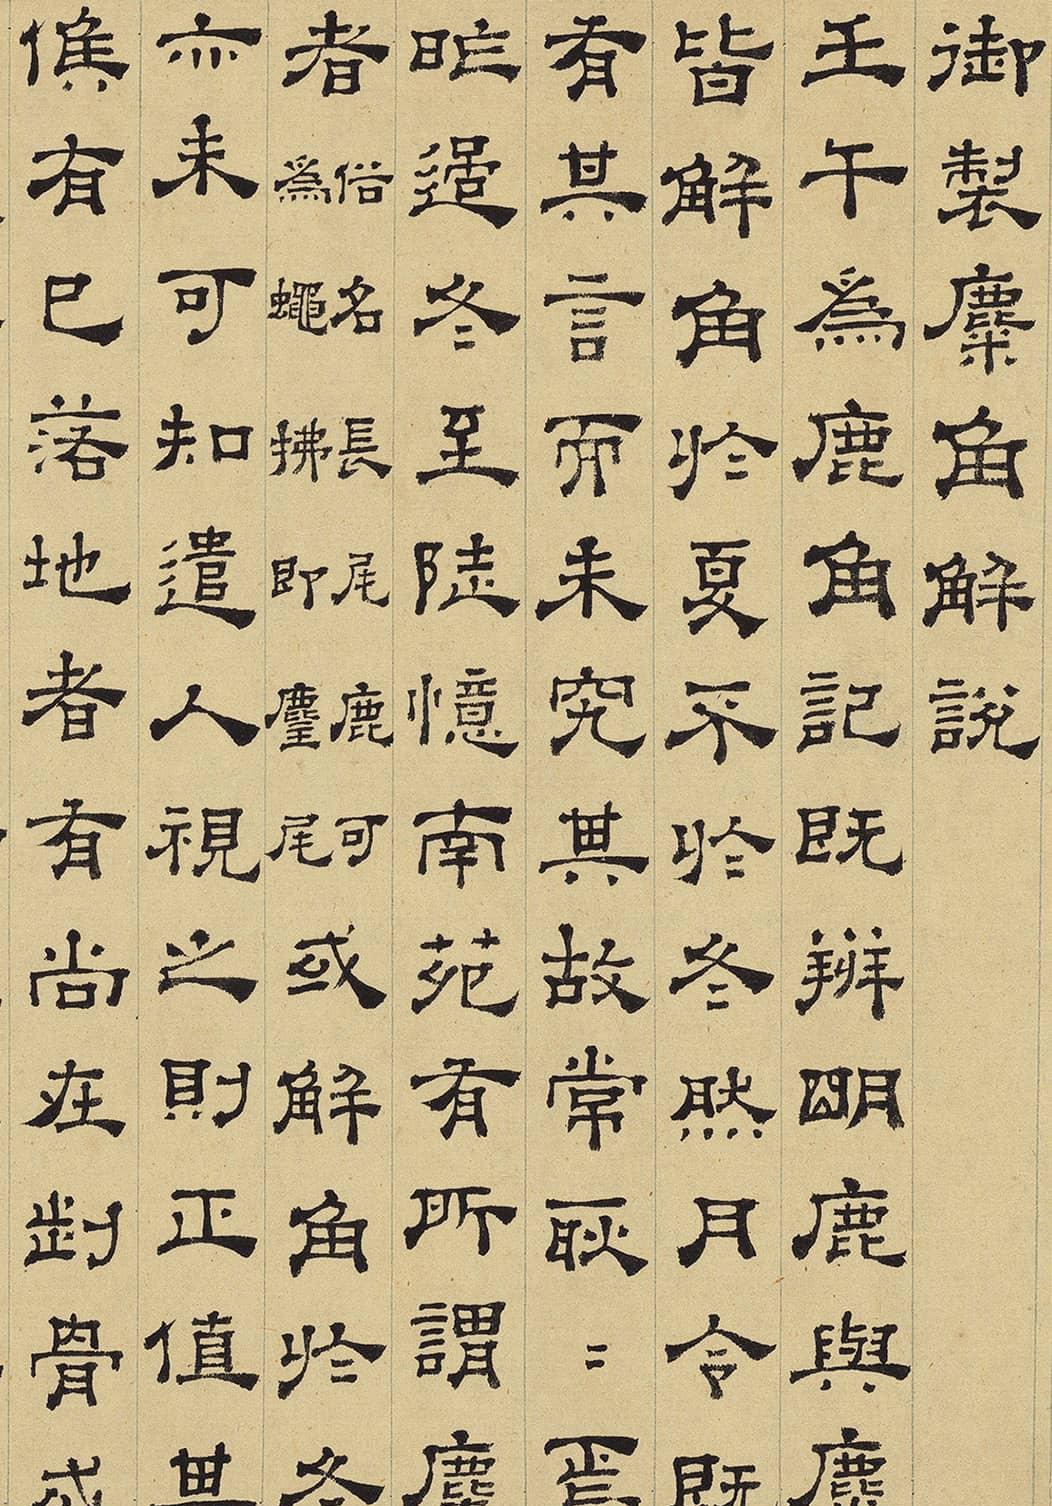 御製麋角解說
壬午為鹿角記既辨明鹿與麋
皆解角於夏不於冬然月令既
有其言而未究其故常耿〻焉
昨過冬至陡憶南苑有所謂麈
者俗名長尾鹿可為蠅拂即麈尾或解角於冬
亦未可知遣人視之則正值其
候有已落地者有尚在骨或